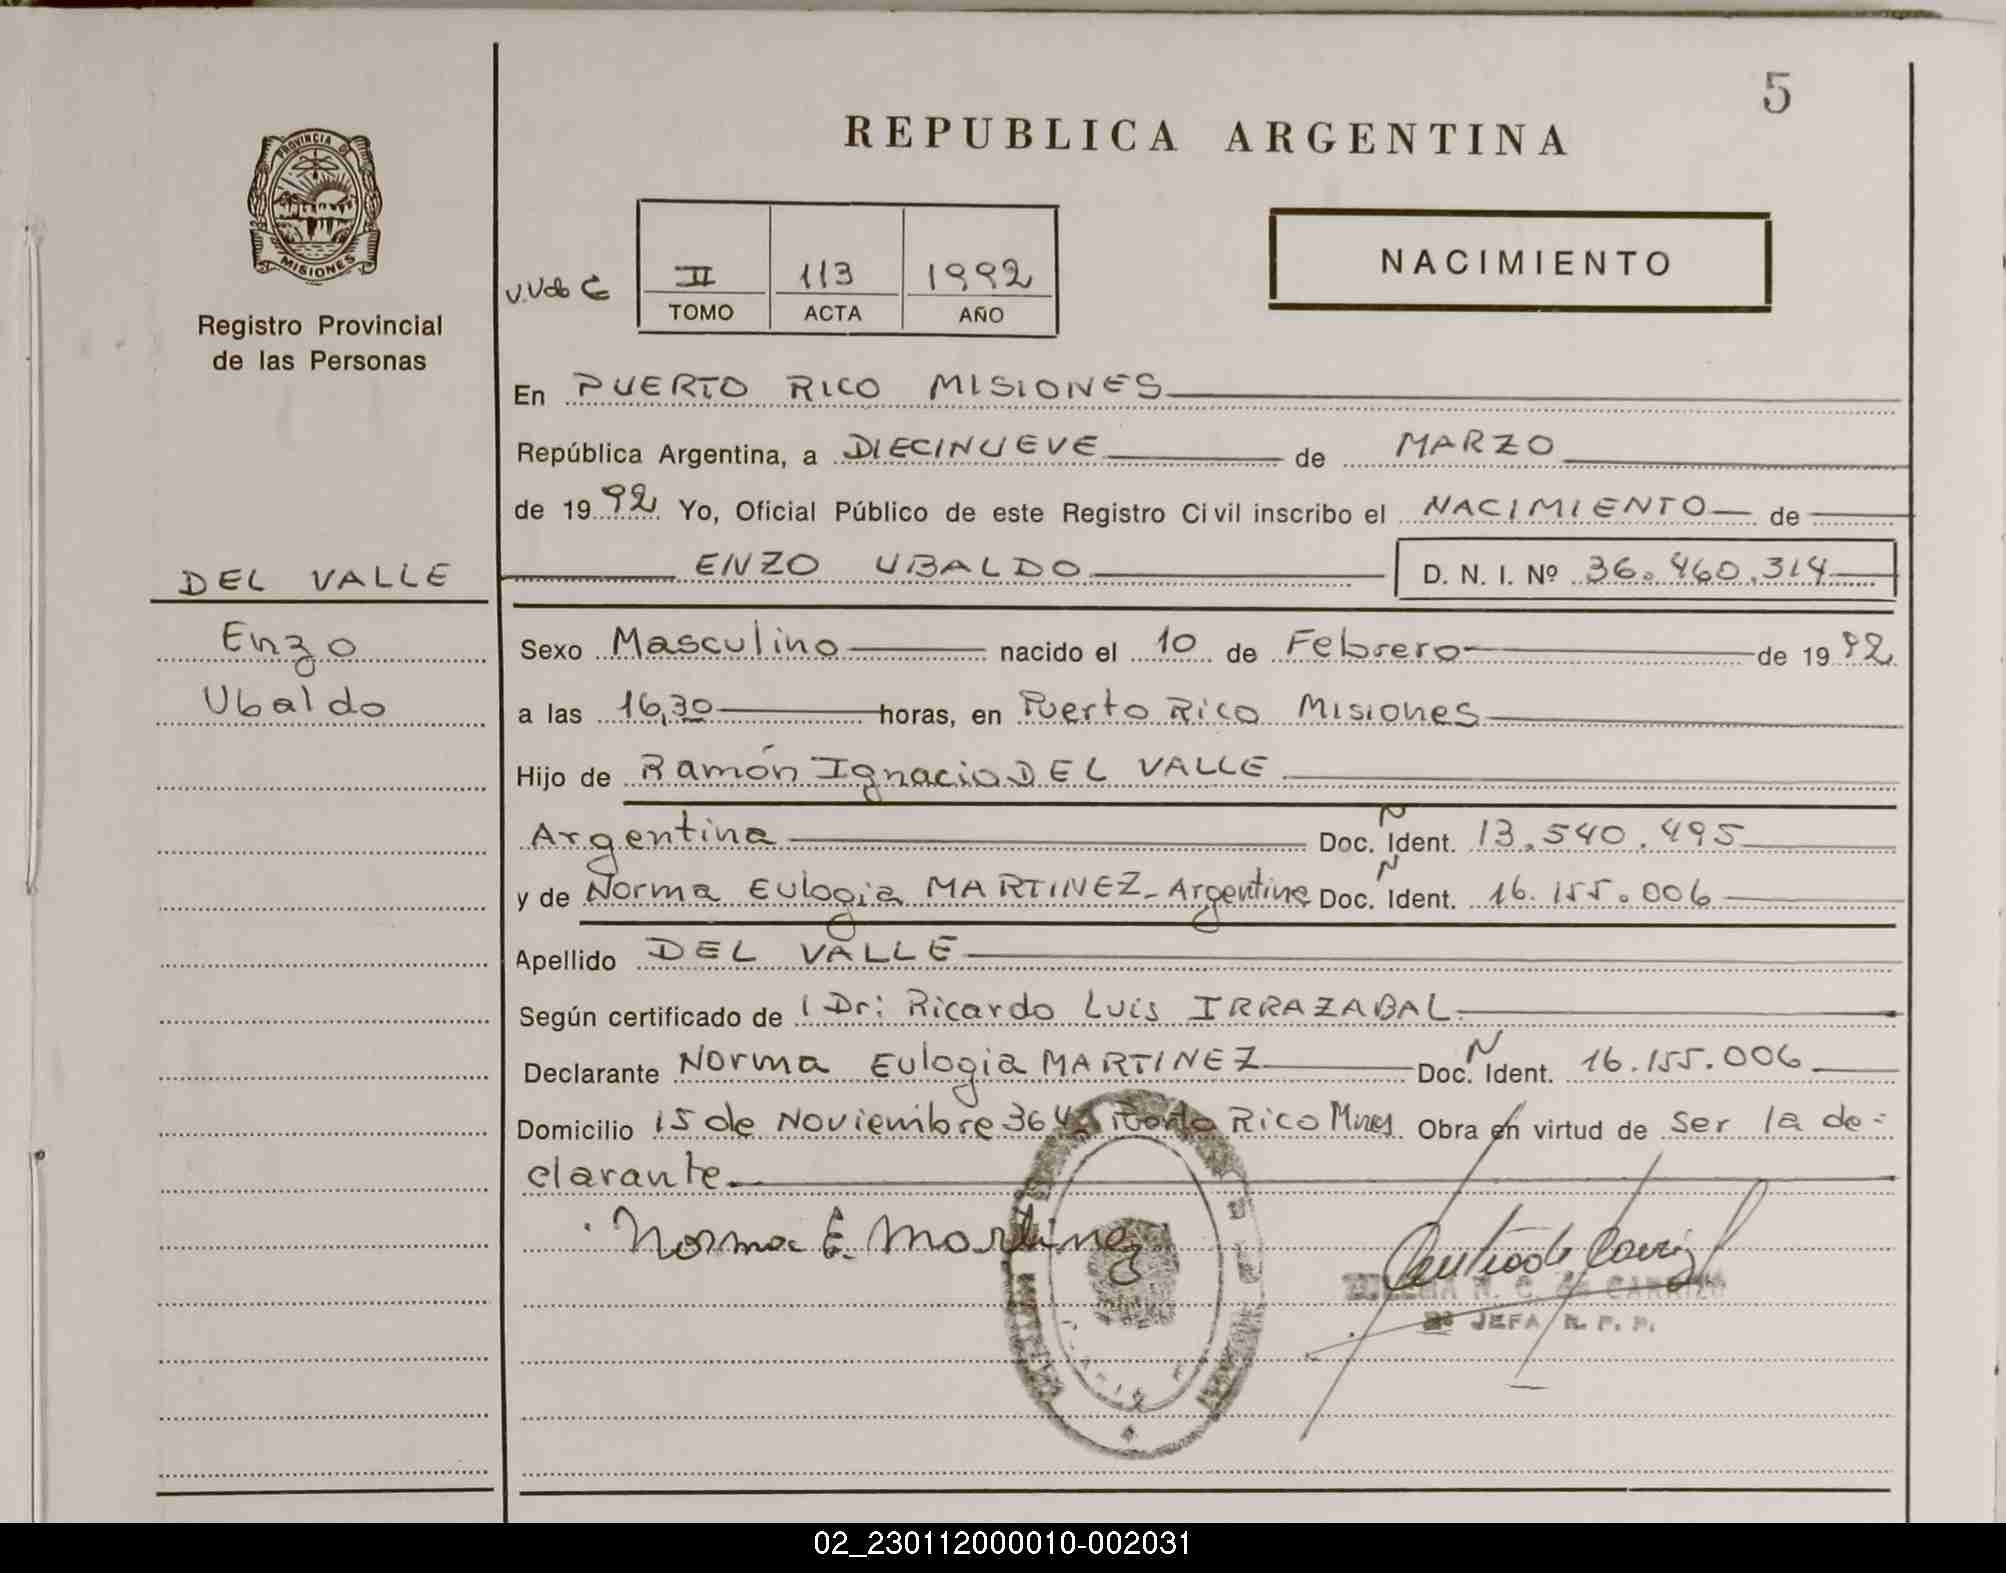 5
REPUBLICA ARGENTINA
PROVINCIA DE
MISIONES
Registro Provincial
de las Personas
II 113 1992
TOMO ACTA AÑO
NACIMIENTO
En PUERTO RICO MISIONES
República Argentina, a DIECINUEVE de MARZO
de 1992 Yo, Oficial Público de este Registro Civil inscribo el NACIMIENTO de
ENZO UBALDO D. N. I. Nº 36.460.314
DEL VALLE
Enzo
Ubaldo
Sexo Masculino nacido el 10 de Febrero de 1992
a las 16,30 horas, en Puerto Rico Misiones
Hijo de Ramón Ignacio DEL VALLE
Argentina Doc. N Ident. 13.540.495
y de Norma Eulogia MARTINEZ - Argentina Doc. N Ident. 16.155.006
Apellido DEL VALLE
Según certificado de Dr: Ricardo Luis IRRAZABAL
Declarante Norma Eulogia MARTINEZ Doc. N Ident. 16.155.006
Domicilio 15 de Noviembre Puerto Rico Mnes Obra en virtud de ser la de-
clarante
Norma E. Martinez
N. C. de CARRIZO
JEFA R. P. P.
02_230112000010-002031